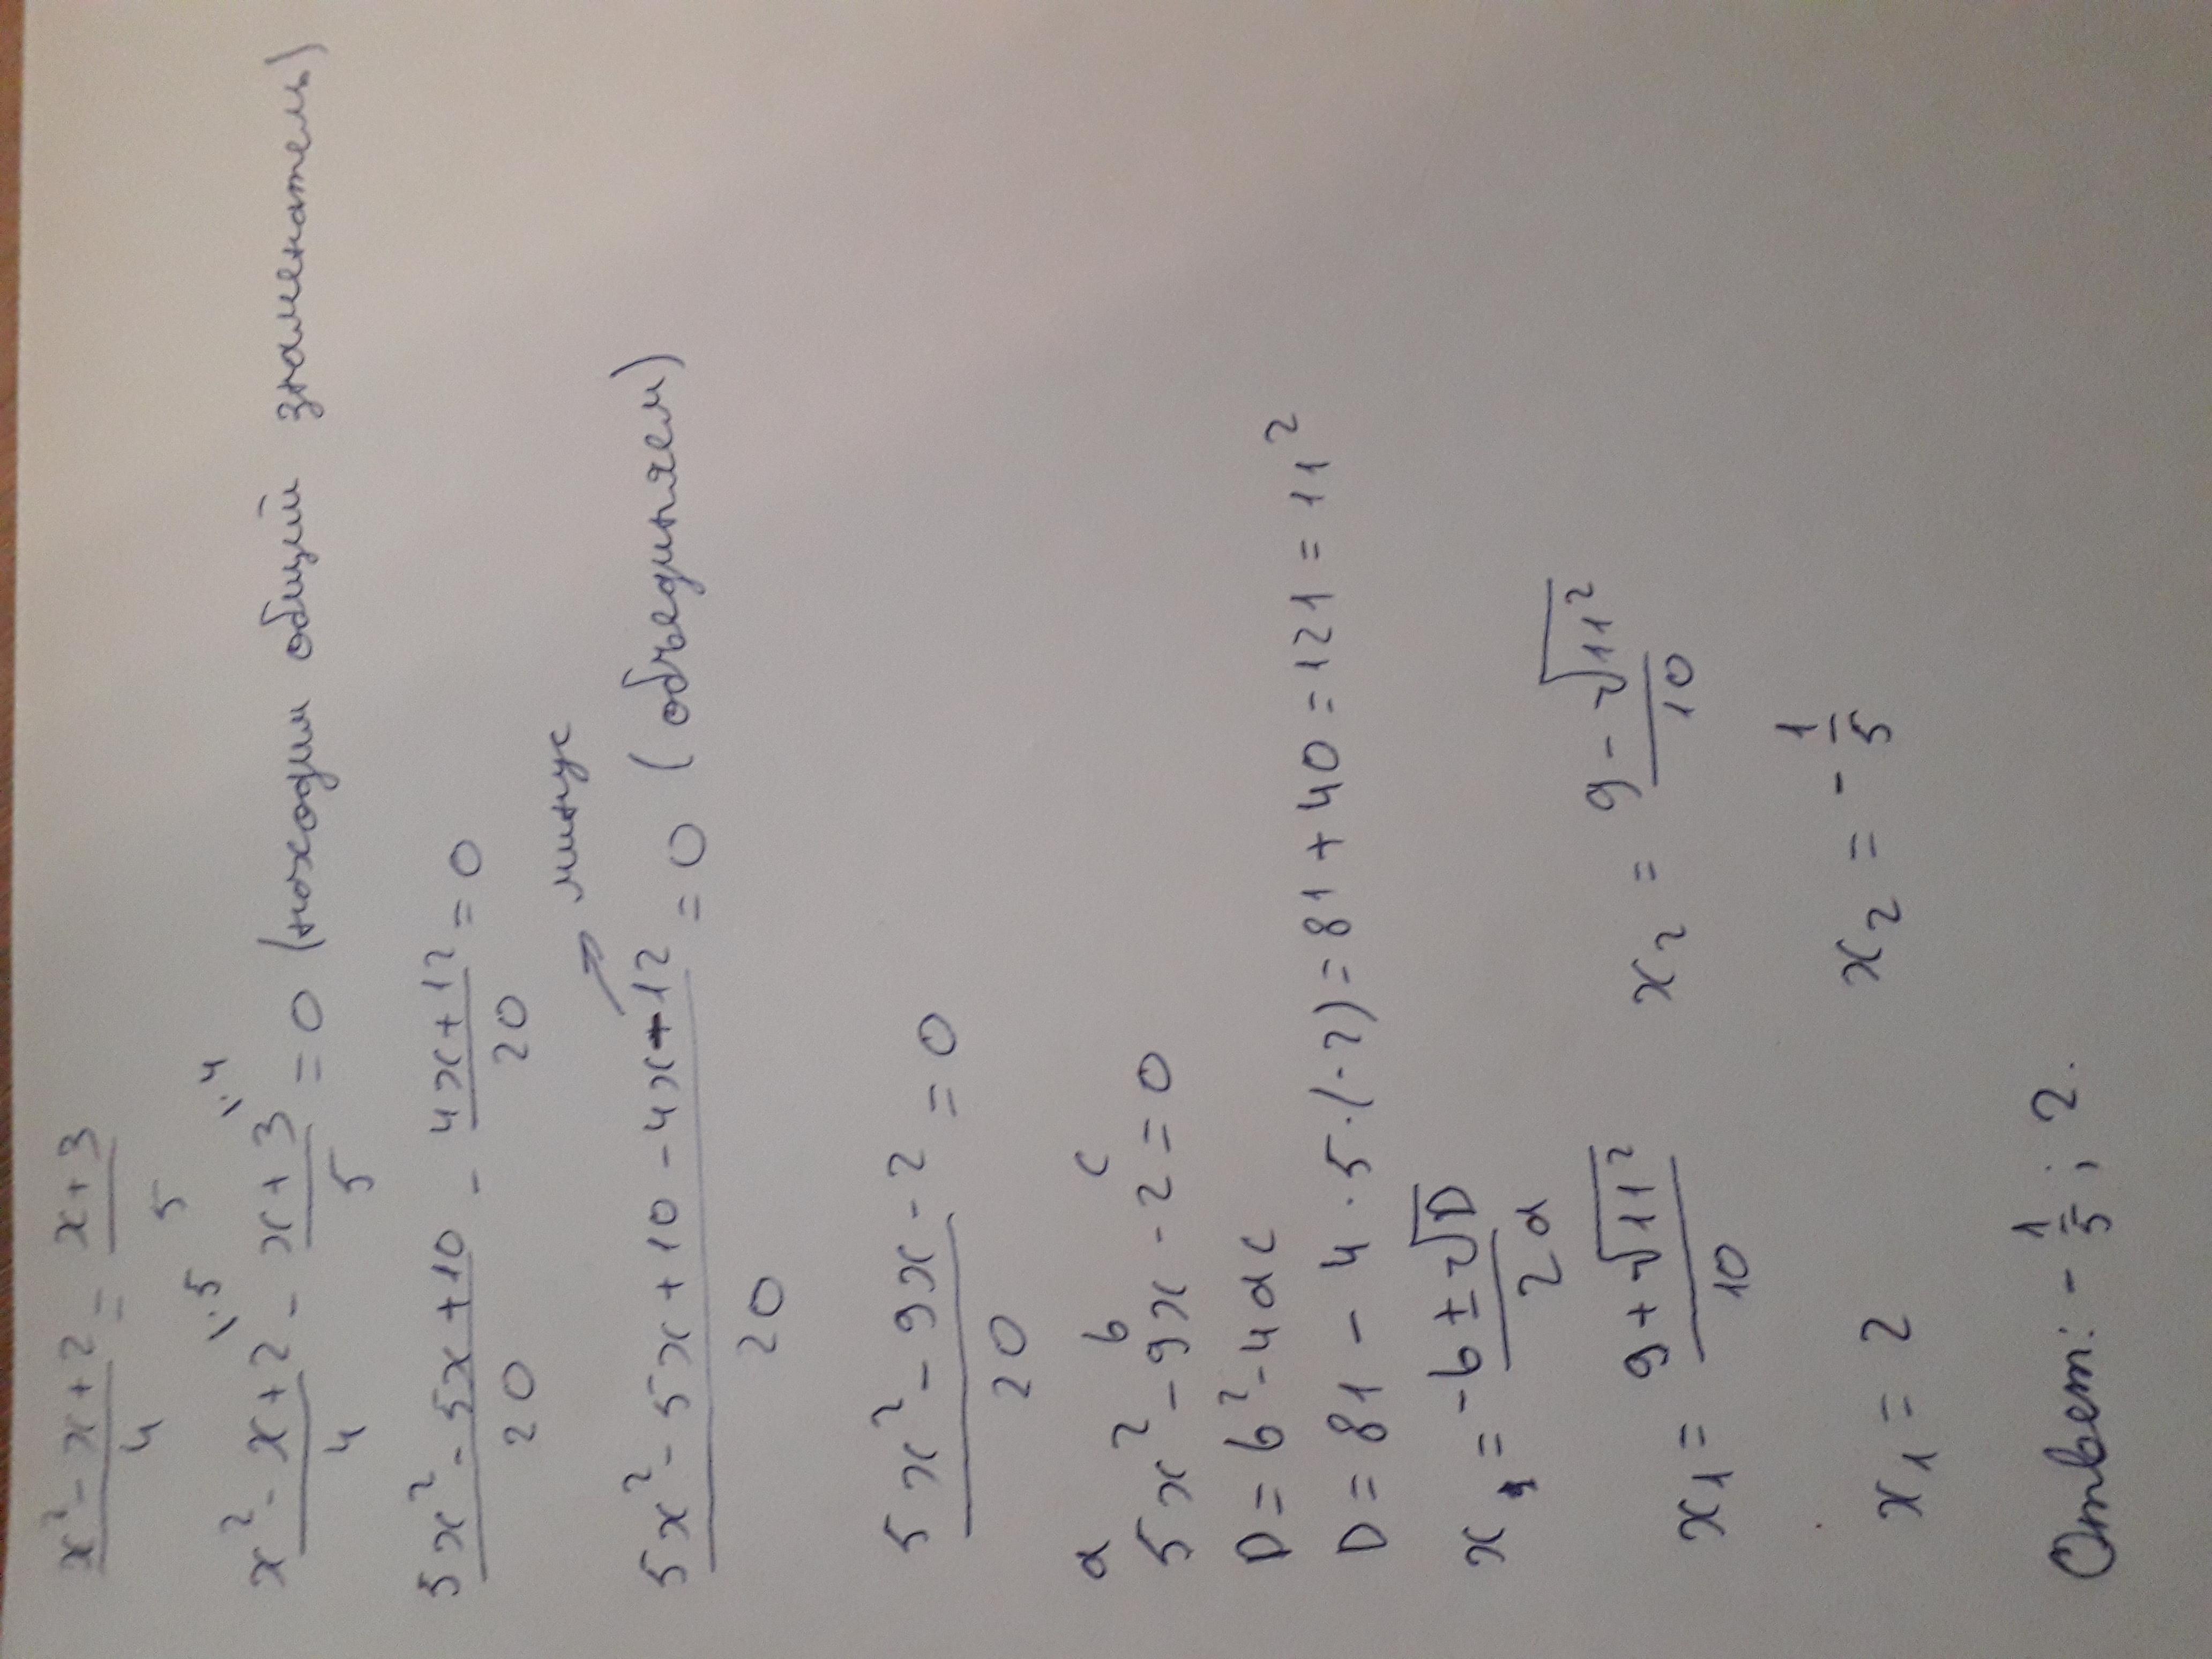 x² - x + 2 / 4 = x + 3 / 5
x² - x + 2 \·5 / 4 - x + 3 \·4 / 5 = 0 (находим общий знаменатель)
5x² - 5x + 10 / 20 - 4x + 12 / 20 = 0
минус
5x² - 5x + 10 - 4x - 12 / 20 = 0 (объединяем)
5x² - 9x - 2 / 20 = 0
a b c
5x² - 9x - 2 = 0
D = b² - 4ac
D = 81 - 4 · 5 · (-2) = 81 + 40 = 121 = 11²
x = -b ± √D / 2a
x₁ = 9 + √11² / 10 x₂ = 9 - √11² / 10
x₁ = 2 x₂ = - 1/5
Ответ: - 1/5 ; 2.